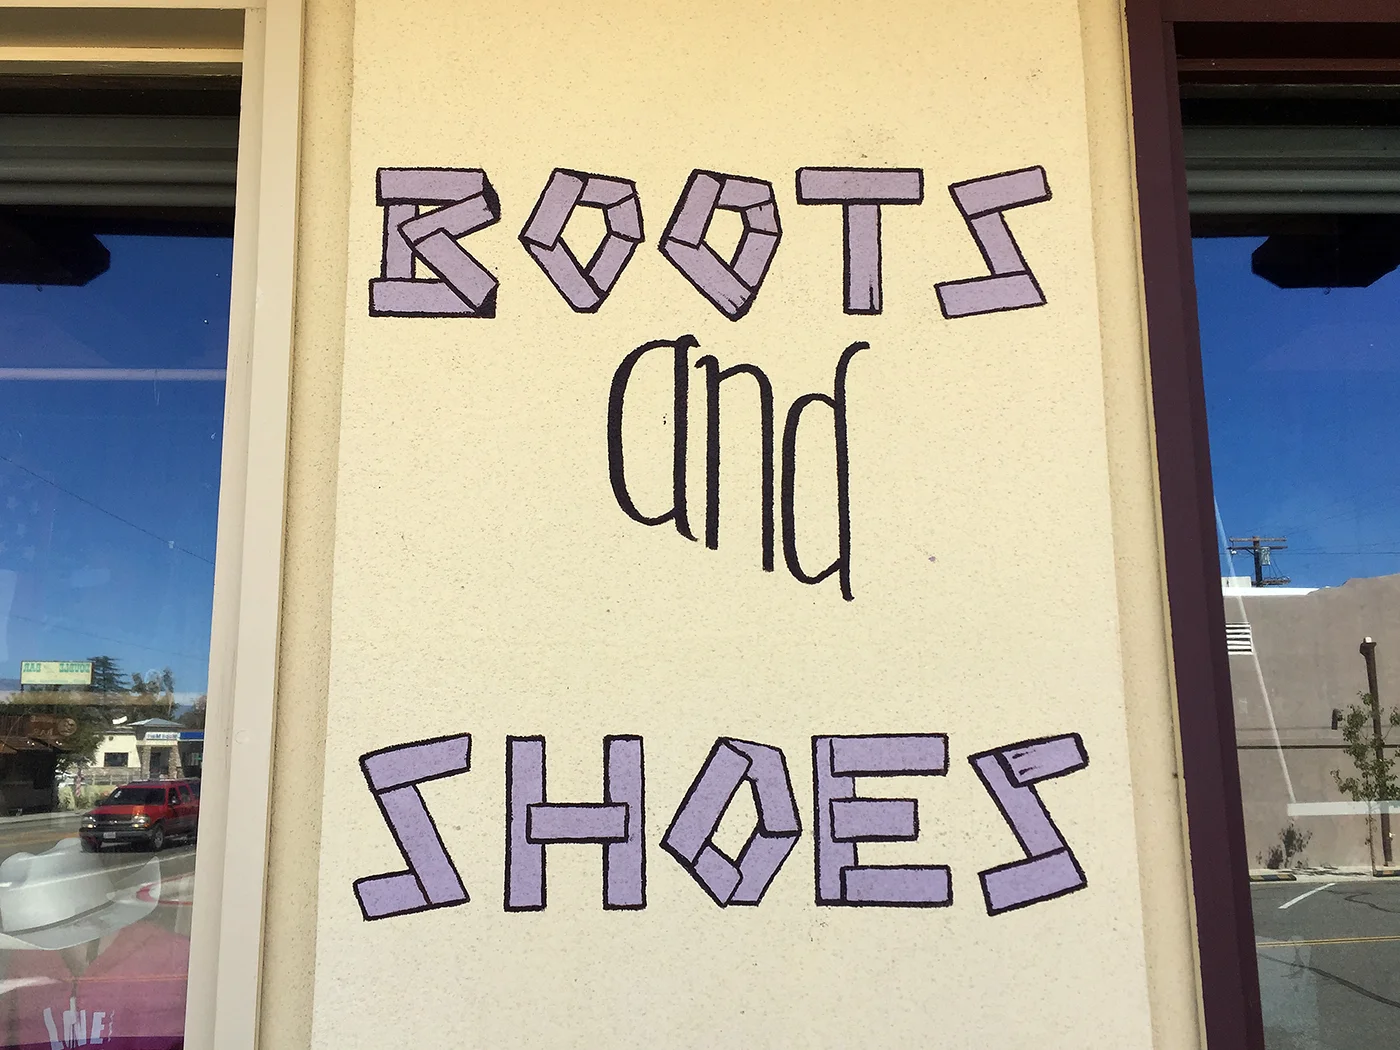 BOOTS
and
SHOES